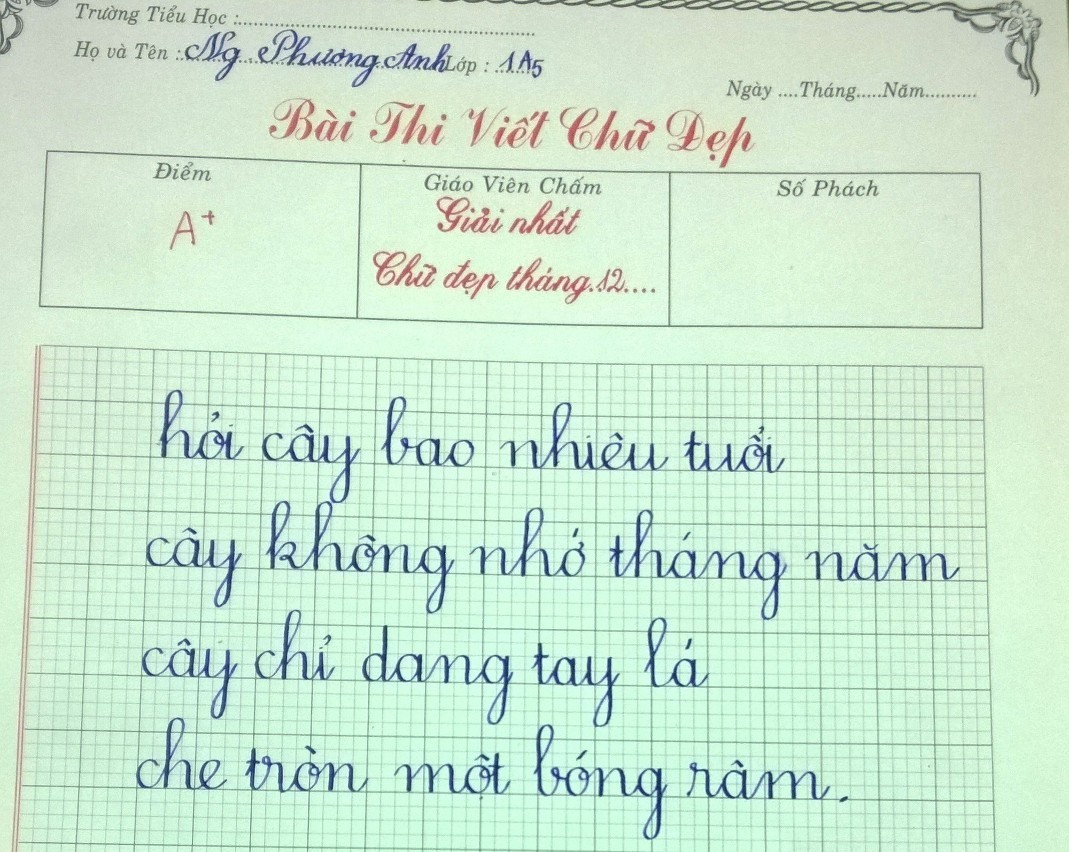 Trường Tiểu Học :..................................................
Họ và Tên : Ng. Phương Anh Lớp : 1A5
Ngày ....Tháng.....Năm..........
Bài Thi Viết Chữ Đẹp
Điểm
Giáo Viên Chấm
Số Phách
A+
Giải nhất
Chữ đẹp tháng.12....
hỏi cây bao nhiêu tuổi
cây không nhớ tháng năm
cây chỉ dang tay lá
che tròn một bóng râm.